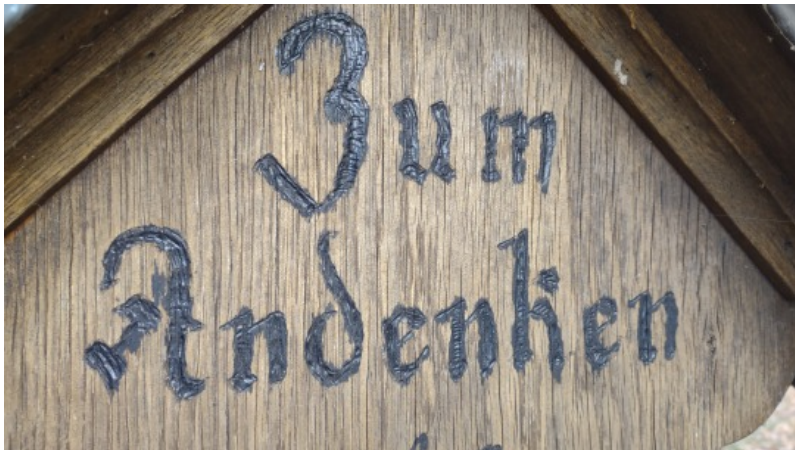 Zum
Andenken